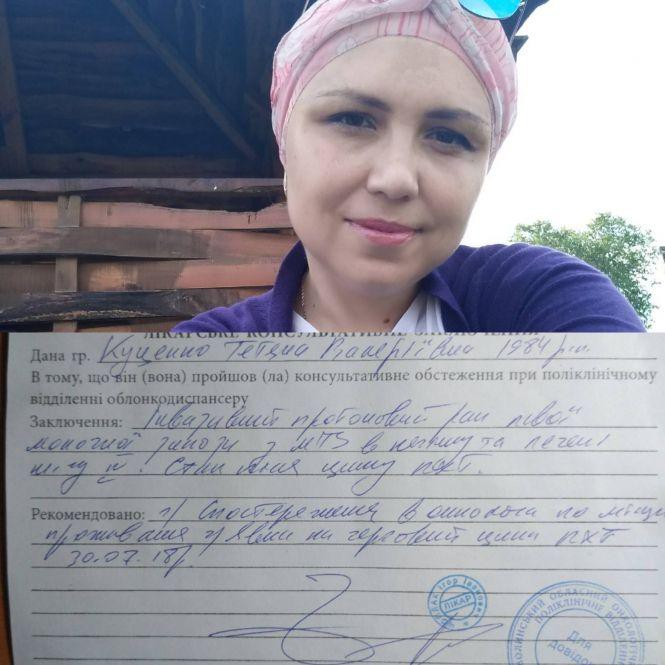 ЛІКАРСЬКЕ КОНСУЛЬТАТИВНЕ
Дана гр. Куценко Тетяна Валеріївна 1984 р.н.
В тому, що він (вона) пройшов (ла) консультативне обстеження при поліклінічному
відділенні облонкодиспансеру
Заключення: Інвазивний протоковий рак лівої
молочної залози з mts в легені та печені
Стан після циклу ПХТ.
Рекомендовано: Спостереження в онколога по місцю
проживання явка на черговий цикл ПХТ
30.07.18р.
Ігор Іванович
ЛІКАР
ОБЛАСНИЙ
ПОЛІКЛІНІЧНЕ
Для
довідок